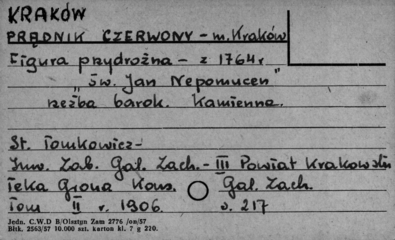 KRAKÓW
PRĄDNIK CZERWONY - m. Kraków
Figura przydrożna - z 1764 r
"Św. Jan Nepomucen"
rzeźba barok. Kamienna.
St. Tomkowicz -
Inw. Zab. Gal. Zach. - III Powiat Krakowski
Teka Grona Kons. Gal. Zach.
Tom II r. 1906. s. 217
Jedn. C.W.D B/Olsztyn Zam 2776 /on/57
Bltk. 2563/57 10.000 szt. karton kl. 7 g 220.